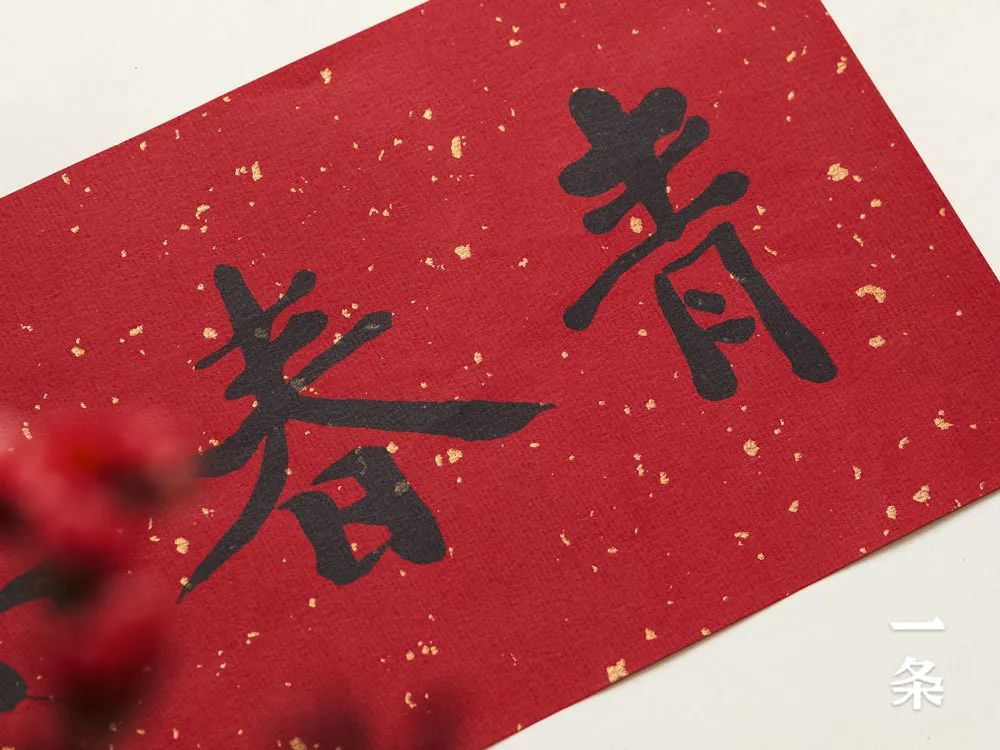 青春
一条